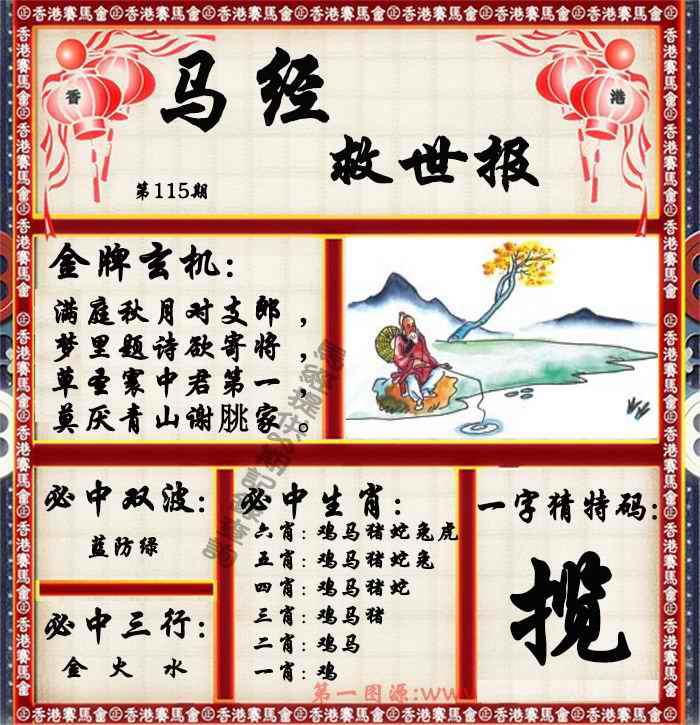 香港賽馬會
香
港
马经
救世报
第115期
金牌玄机:
满庭秋月对支郎,
梦里题诗欲寄将,
草圣寰中君第一,
莫厌青山谢朓家。
必中双波:
蓝防绿
必中三行:
金 火 水
必中生肖:
六肖:鸡马猪蛇兔虎
五肖:鸡马猪蛇兔
四肖:鸡马猪蛇
三肖:鸡马猪
二肖:鸡马
一肖:鸡
一字猜特码:
揽
第一图源:www